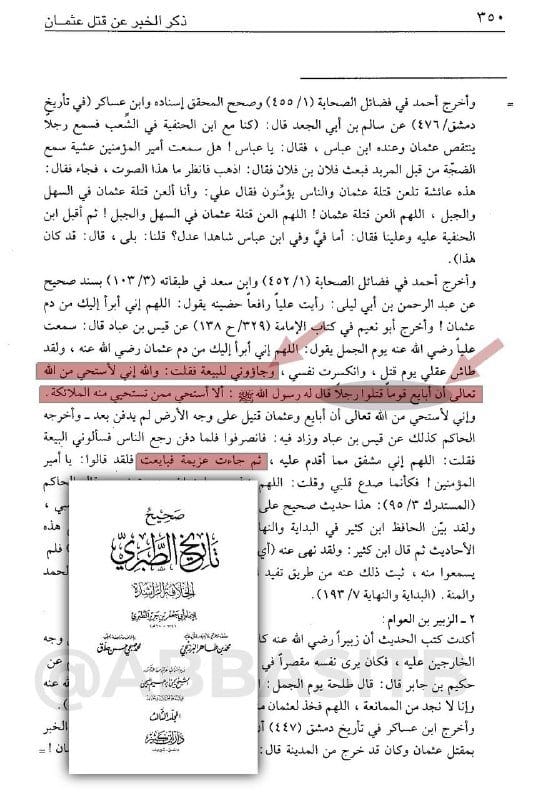 ٣٥٠
ذكر الخبر عن قتل عثمـان
= وأخرج أحمد في فضائل الصحابة (١/ ٤٥٥) وصحح المحقق إسناده وابن عساكر (في تأريخ
دمشق/ ٤٧٦) عن سالم بن أبي الجعد قال: (كنا مع ابن الحنفية في الشِّعب فسمع رجلاً
ينتقص عثمان وعنده ابن عباس ، فقال: يا عباس! هل سمعت أمير المؤمنين عشية سمع
الضجّة من قبل المربد فبعث فلان بن فلان فقال: اذهب فانظر ما هذا الصوت ، فجاء فقال:
هذه عائشة تلعن قتلة عثمان والناس يؤمِّنون فقال علي: وأنا ألعن قتلة عثمان في السهل
والجبل ، اللهم العن قتلة عثمان! اللهم العن قتلة عثمان في السهل والجبل! ثم أقبل ابن
الحنفية عليه وعلينا فقال: أما فيَّ وفي ابن عباس شاهدا عدل؟ قلنا: بلى ، قال: قد كان
هذا).
وأخرج أحمد في فضائل الصحابة (١/ ٤٥٢) وابن سعد في طبقاته (٣/ ١٠٣) بسند صحيح
عن عبد الرحمن بن أبي ليلى: رأيت علياً رافعاً حضينه يقول: اللهم إني أبرأ إليك من دم
عثمان! وأخرج أبو نعيم في كتاب الإمامة (٣٢٩/ ح ١٣٨) عن قيس بن عباد قال: سمعت
علياً رضي الله عنه يوم الجمل يقول: اللهم إني أبرأ إليك من دم عثمان رضي الله عنه ، ولقد
طاش عقلي يوم قتل ، وانكسرت نفسي ، وجاؤوني للبيعة فقلت: والله إني لأستحي من الله
تعالى أن أبايع قوماً قتلوا رجلاً قال له رسول الله ﷺ: ألا أستحي ممن تستحيي منه الملائكة .
وإني لأستحي من الله تعالى أن أبايع وعثمان قتيل على وجه الأرض لم يدفن بعد - وأخرجه
الحاكم كذلك عن قيس بن عباد وزاد فيه: فانصرفوا فلما دفن رجع الناس فسألوني البيعة
فقلت: اللهم إني مشفق مما أقدم عليه ، ثم جاءت عزيمة فبايعت فلقد قالوا: يا أمير
المؤمنين! فكأنما صدع قلبي وقلت: اللهم
الحاكم
(المستدرك ٣/ ٩٥): هذا حديث صحيح على
ولقد بين الحافظ ابن كثير في البداية والنها
الأحاديث ثم قال ابن كثير: ولقد نهى عنه (أي
فلم
يسمعوا منه ، ثبت ذلك عنه من طريق تفيد
الحمد
والمنة . (البداية والنهاية ٧/ ١٩٣).
٢ - الزبير بن العوام:
أكدت كتب الحديث أن زبيراً رضي الله عنه كا
وجه
الخارجين عليه ، فكان يرى نفسه مقصراً في
حكيم بن جابر قال: قال طلحة يوم الجمل:
وإنا لا نجد من الممانعة ، اللهم فخذ لعثمان
وأخرج ابن عساكر في تأريخ دمشق (٤٤٧) أن
الخبر
بمقتل عثمان وكان قد خرج من المدينة قال:
! =
صحيح
تاريخ الطبري
الخلافة الراشدة
المجلد الثالث
دار ابن كثير